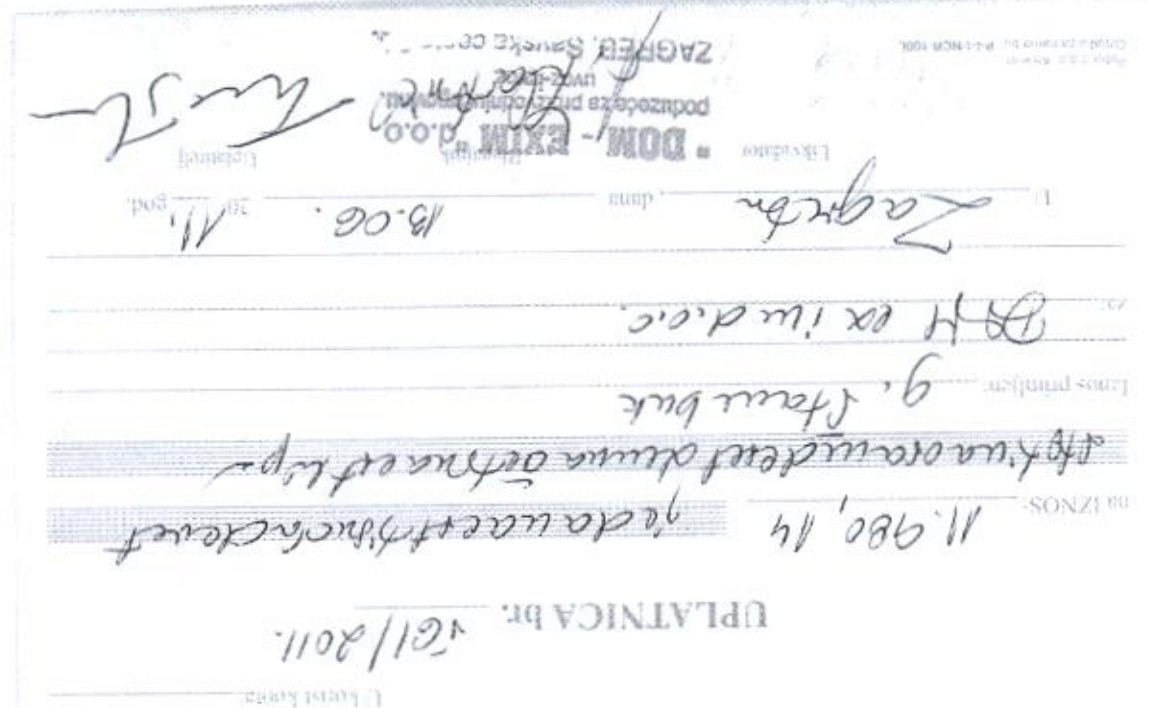 U korist konta:
UPLATNICA br. 161/2011.
na IZNOS- 11.980,14 jedanaest tisuća devet
stotina osamdeset kuna četrnaest lipa
Iznos primljen: g. Stambuk
DOM exim d.o.o.
U Zagrebu, dana 13.06. 20 11. god.
Likvidator Blagajnik Uplatitelj
" DOM - EXIM " d.o.o
poduzeće za proizvodnju, trgovinu,
uvoz-izvoz
ZAGREB, Savska